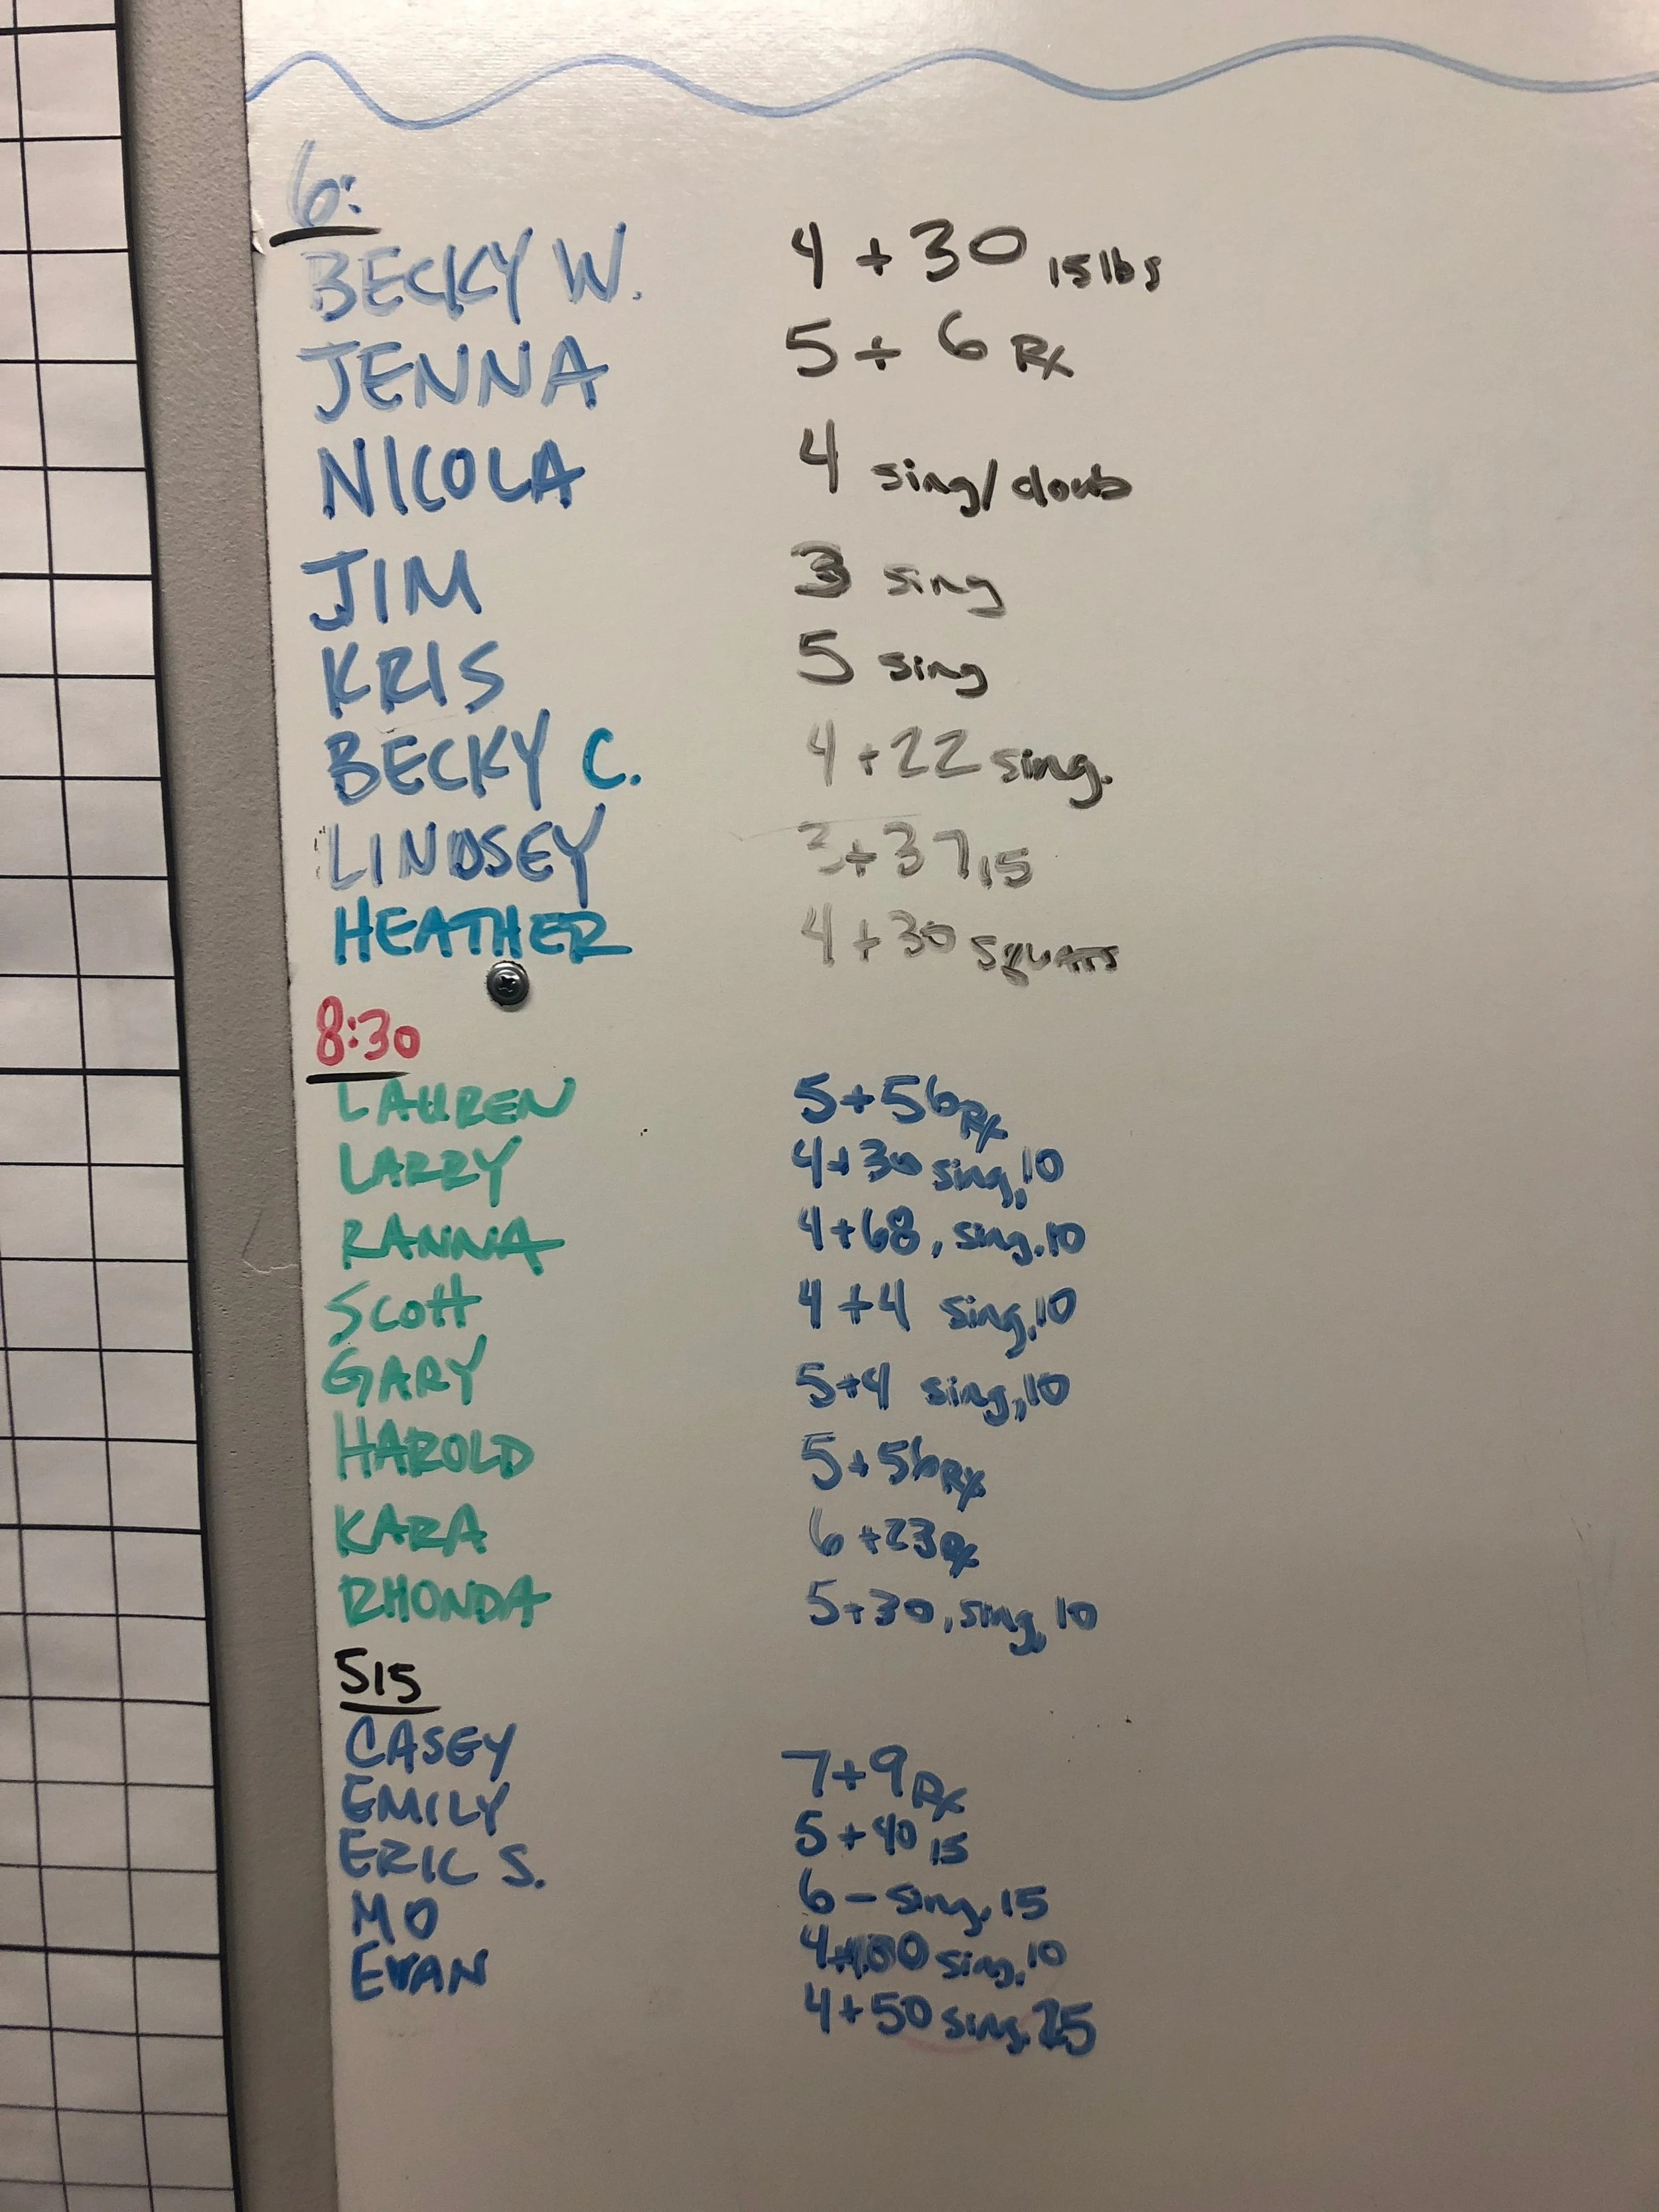 6:
BECKY W. 4 + 30 15 lbs
JENNA 5 + 6 Rx
NICOLA 4 sing/doub
JIM 3 sing
KRIS 5 sing
BECKY C. 4 + 22 sing.
LINDSEY 3 + 37 15
HEATHER 4 + 30 SQUATS
8:30
LAUREN 5 + 56 Rx
LARRY 4 + 30 sing, 10
RANNA 4 + 68, sing. 10
SCOTT 4 + 4 sing, 10
GARY 5 + 4 sing, 10
HAROLD 5 + 56 Rx
KARA 6 + 23 Rx
RHONDA 5 + 30, sing, 10
515
CASEY 7 + 9 Rx
EMILY 5 + 40 15
ERIC S. 6 - sing. 15
MO 4 sing. 10
EVAN 4 + 50 sing. 25